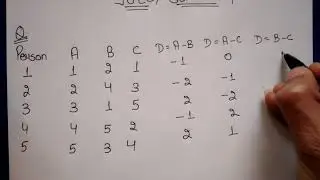 Q.
Person A B C D=A-B D=A-C D=B-C
1 1 2 1 -1 0
2 2 4 3 -2 -1
3 3 1 5 2 -2
4 4 5 2 -1 2
5 5 3 4 2 1